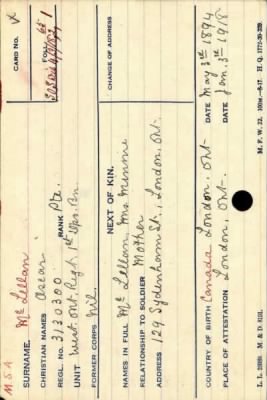 M.S.A
CARD No. X
SURNAME. McLellan
FOLL. 65 1
CHRISTIAN NAMES Oscar
REGL. No. 3130300 RANK Pte.
UNIT West. Ont. Regt., 1st Dps. Bn
FORMER CORPS Nil.
NEXT OF KIN.
CHANGE OF ADDRESS
NAMES IN FULL McLellan, Mrs Minnie
RELATIONSHIP TO SOLDIER Mother
ADDRESS 129 Sydenham St., London, Ont.
COUNTRY OF BIRTH Canada London, Ont DATE May 3rd 1894
PLACE OF ATTESTATION London, Ont. DATE Jan. 3rd 1918